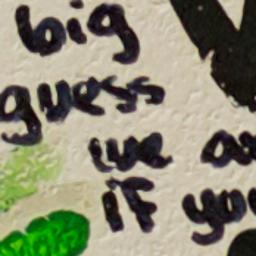 big
guess
we
if you